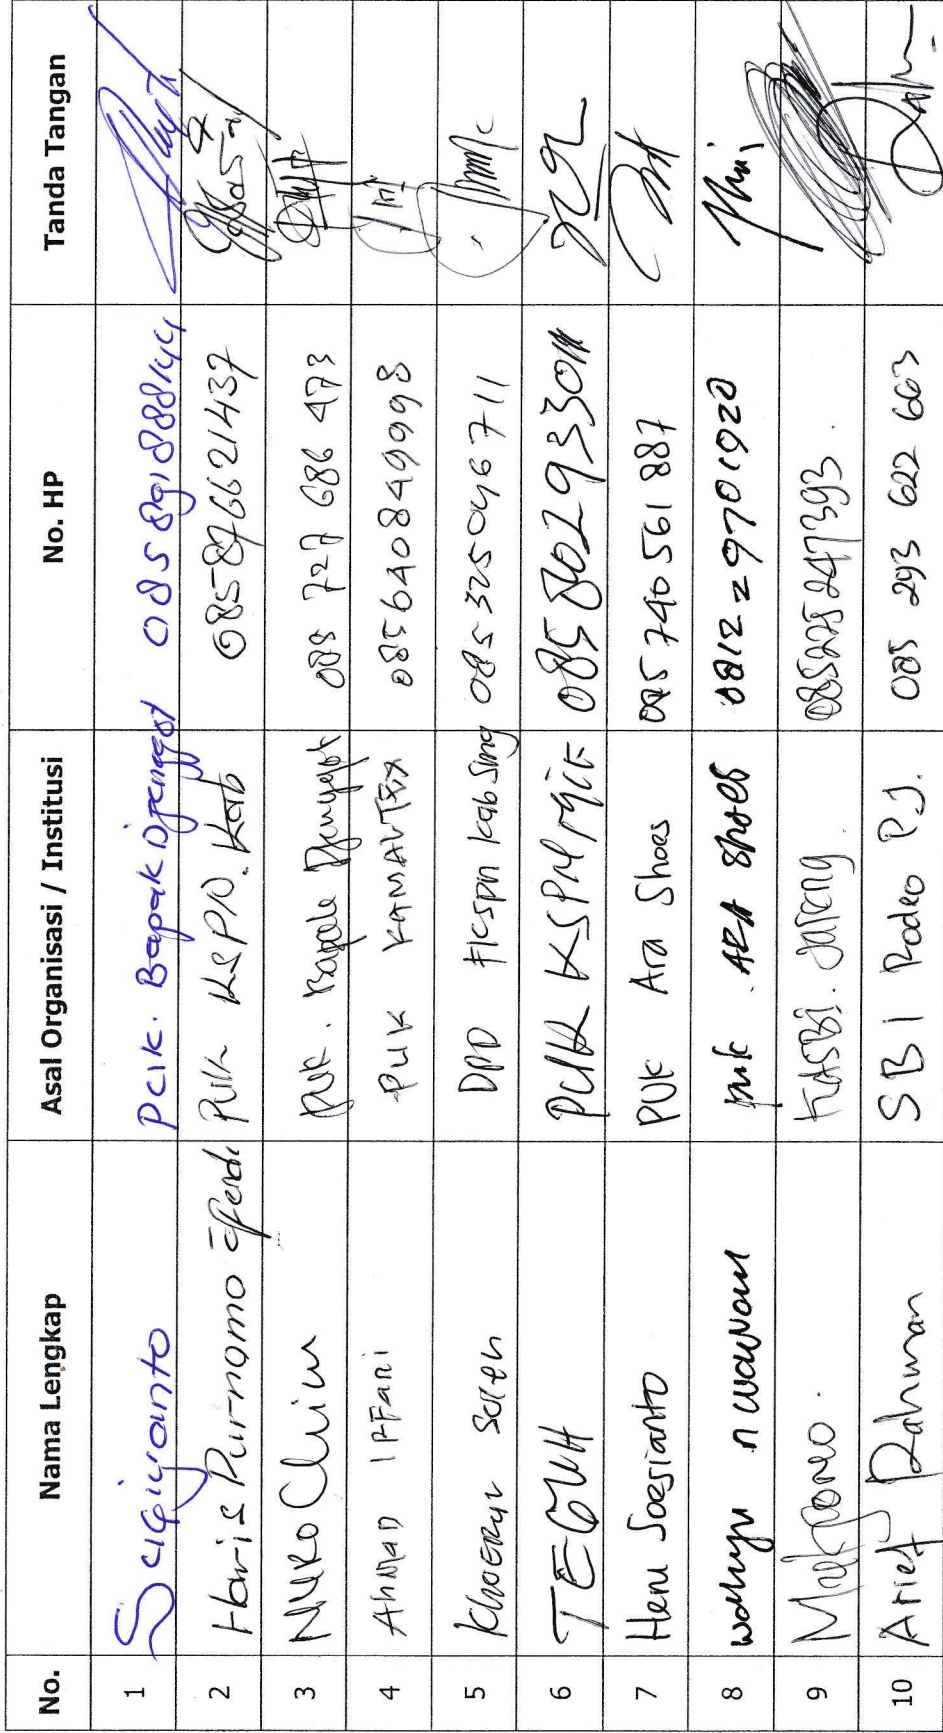 No. Nama Lengkap Asal Organisasi / Institusi No. HP Tanda Tangan
1 Sugiyanto PUK. Bapak Djenggot 085891888144
2 Haris Purnomo Efendi PUK KSPN. Kab 085876621437
3 Nur Kholim PUK. 088 727 686 473
4 AHMAD IFFani PUK 085640849998
5 KHOERUL Soleh DPD FKSPN Kab Smg 085325046711
6 TEGUH PUK KSPN
7 Heru Soesianto PUK Ara Shoes 085740561887
8 wahyu n puk. ARA Shoes 081229701920
9 KASBI. Jateng 085225247393.
10 Arief Rahman SBI Rodeo PJ. 085 293 622 663